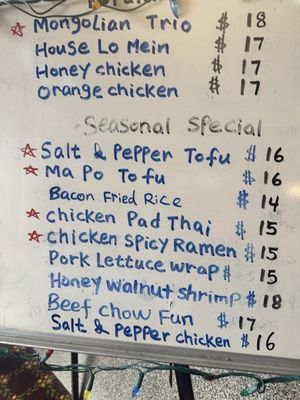 Mongolian Trio $ 18
House Lo Mein $ 17
Honey chicken $ 17
Orange chicken $ 17
Seasonal Special
Salt & Pepper Tofu $ 16
Ma Po Tofu $ 16
Bacon Fried Rice $ 14
chicken Pad Thai $ 15
chicken spicy Ramen $ 15
Pork Lettuce wrap $ 15
Honey walnut shrimp $ 18
Beef chow Fun $ 17
Salt & Pepper chicken $ 16